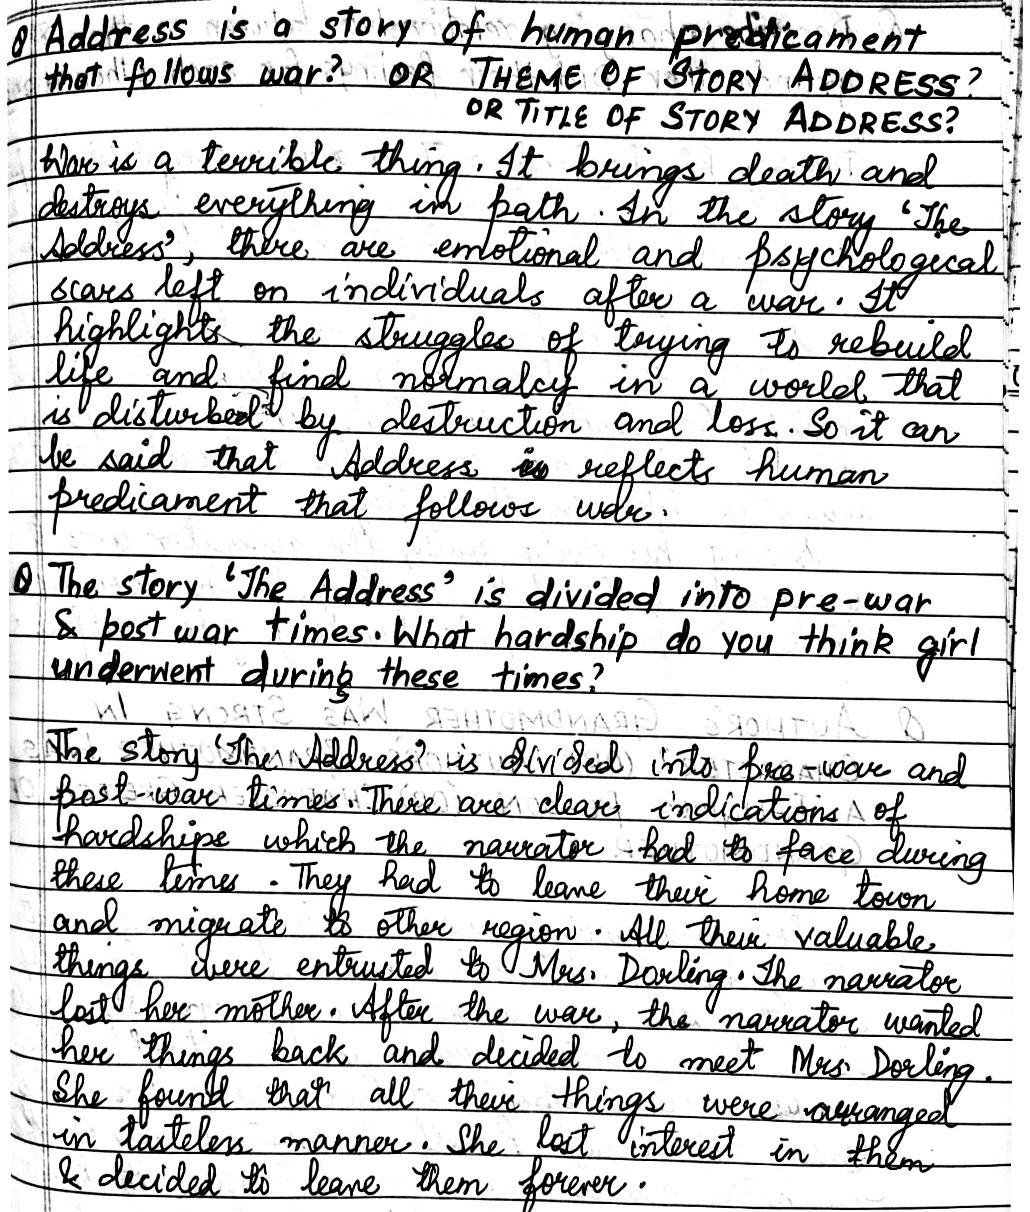 Q Address is a story of human predicament
that follows war? OR THEME OF STORY ADDRESS?
OR TITLE OF STORY ADDRESS?
War is a terrible thing. It brings death and
destroys everything in path. In the story 'The
Address', there are emotional and psychological
scars left on individuals after a war. It
highlights the struggles of trying to rebuild
life and find normalcy in a world that
is disturbed by destruction and loss. So it can
be said that Address reflects human
predicament that follows war.
Q The story 'The Address' is divided into pre-war
& post war times. What hardship do you think girl
underwent during these times?
The story 'The Address' is divided into pre-war and
post-war times. There are clear indications of
hardships which the narrator had to face during
these times. They had to leave their home town
and migrate to other region. All their valuable
things were entrusted to Mrs. Dorling. The narrator
lost her mother. After the war, the narrator wanted
her things back and decided to meet Mrs. Dorling.
She found that all their things were arranged
in tasteless manner. She lost interest in them
& decided to leave them forever.